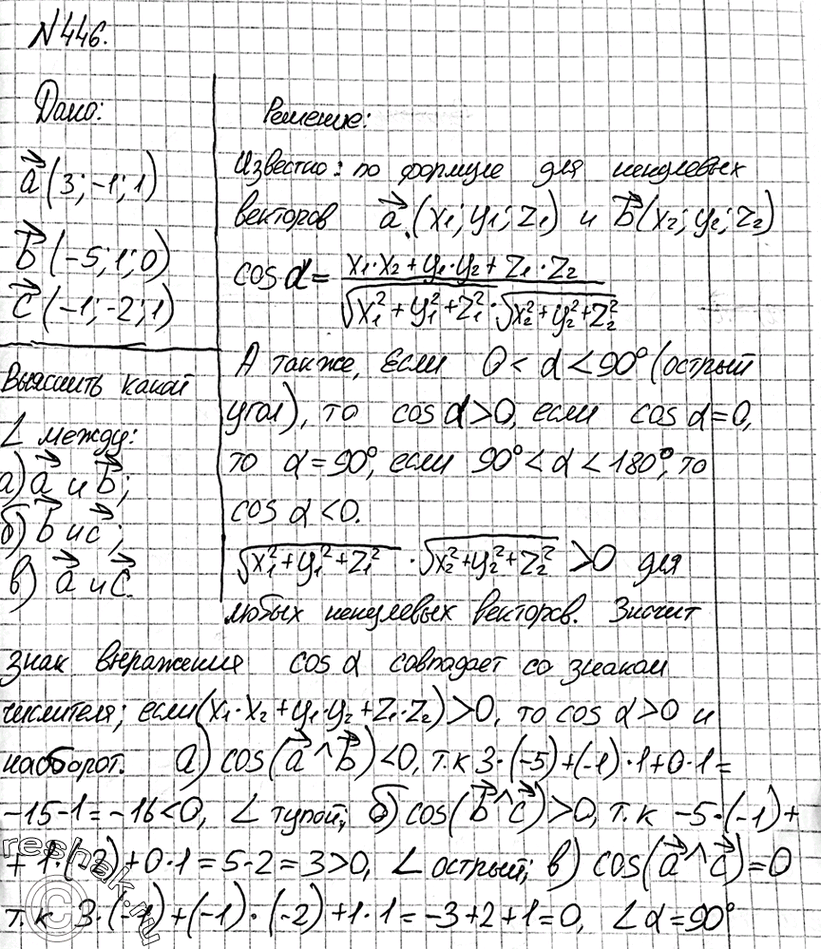 N446.
Дано:
a⃗ (3; -1; 1)
b⃗ (-5; 1; 0)
c⃗ (-1; -2; 1)
Выяснить какой
∠ между:
а) a⃗ и b⃗;
б) b⃗ и c⃗;
в) a⃗ и c⃗.
Решение:
Известно: по формуле для ненулевых
векторов a⃗ (x₁; y₁; z₁) и b⃗ (x₂; y₂; z₂)
cos α = (x₁·x₂ + y₁·y₂ + z₁·z₂) / (√(x₁² + y₁² + z₁²) · √(x₂² + y₂² + z₂²))
А также, если 0 < α < 90° (острый
угол), то cos α > 0, если cos α = 0,
то α = 90°, если 90° < α < 180°, то
cos α < 0.
√(x₁² + y₁² + z₁²) · √(x₂² + y₂² + z₂²) > 0 для
любых ненулевых векторов. Значит
знак выражения cos α совпадает со знаком
числителя; если (x₁·x₂ + y₁·y₂ + z₁·z₂) > 0, то cos α > 0 и
наоборот. а) cos(a⃗ ^ b⃗) < 0, т.к 3·(-5) + (-1)·1 + 0·1 =
-15 - 1 = -16 < 0, ∠ тупой; б) cos(b⃗ ^ c⃗) > 0, т.к -5·(-1) +
+ 1·(-2) + 0·1 = 5 - 2 = 3 > 0, ∠ острый; в) cos(a⃗ ^ c⃗) = 0
т.к 3·(-1) + (-1)·(-2) + 1·1 = -3 + 2 + 1 = 0, ∠α = 90°
reshak.ru